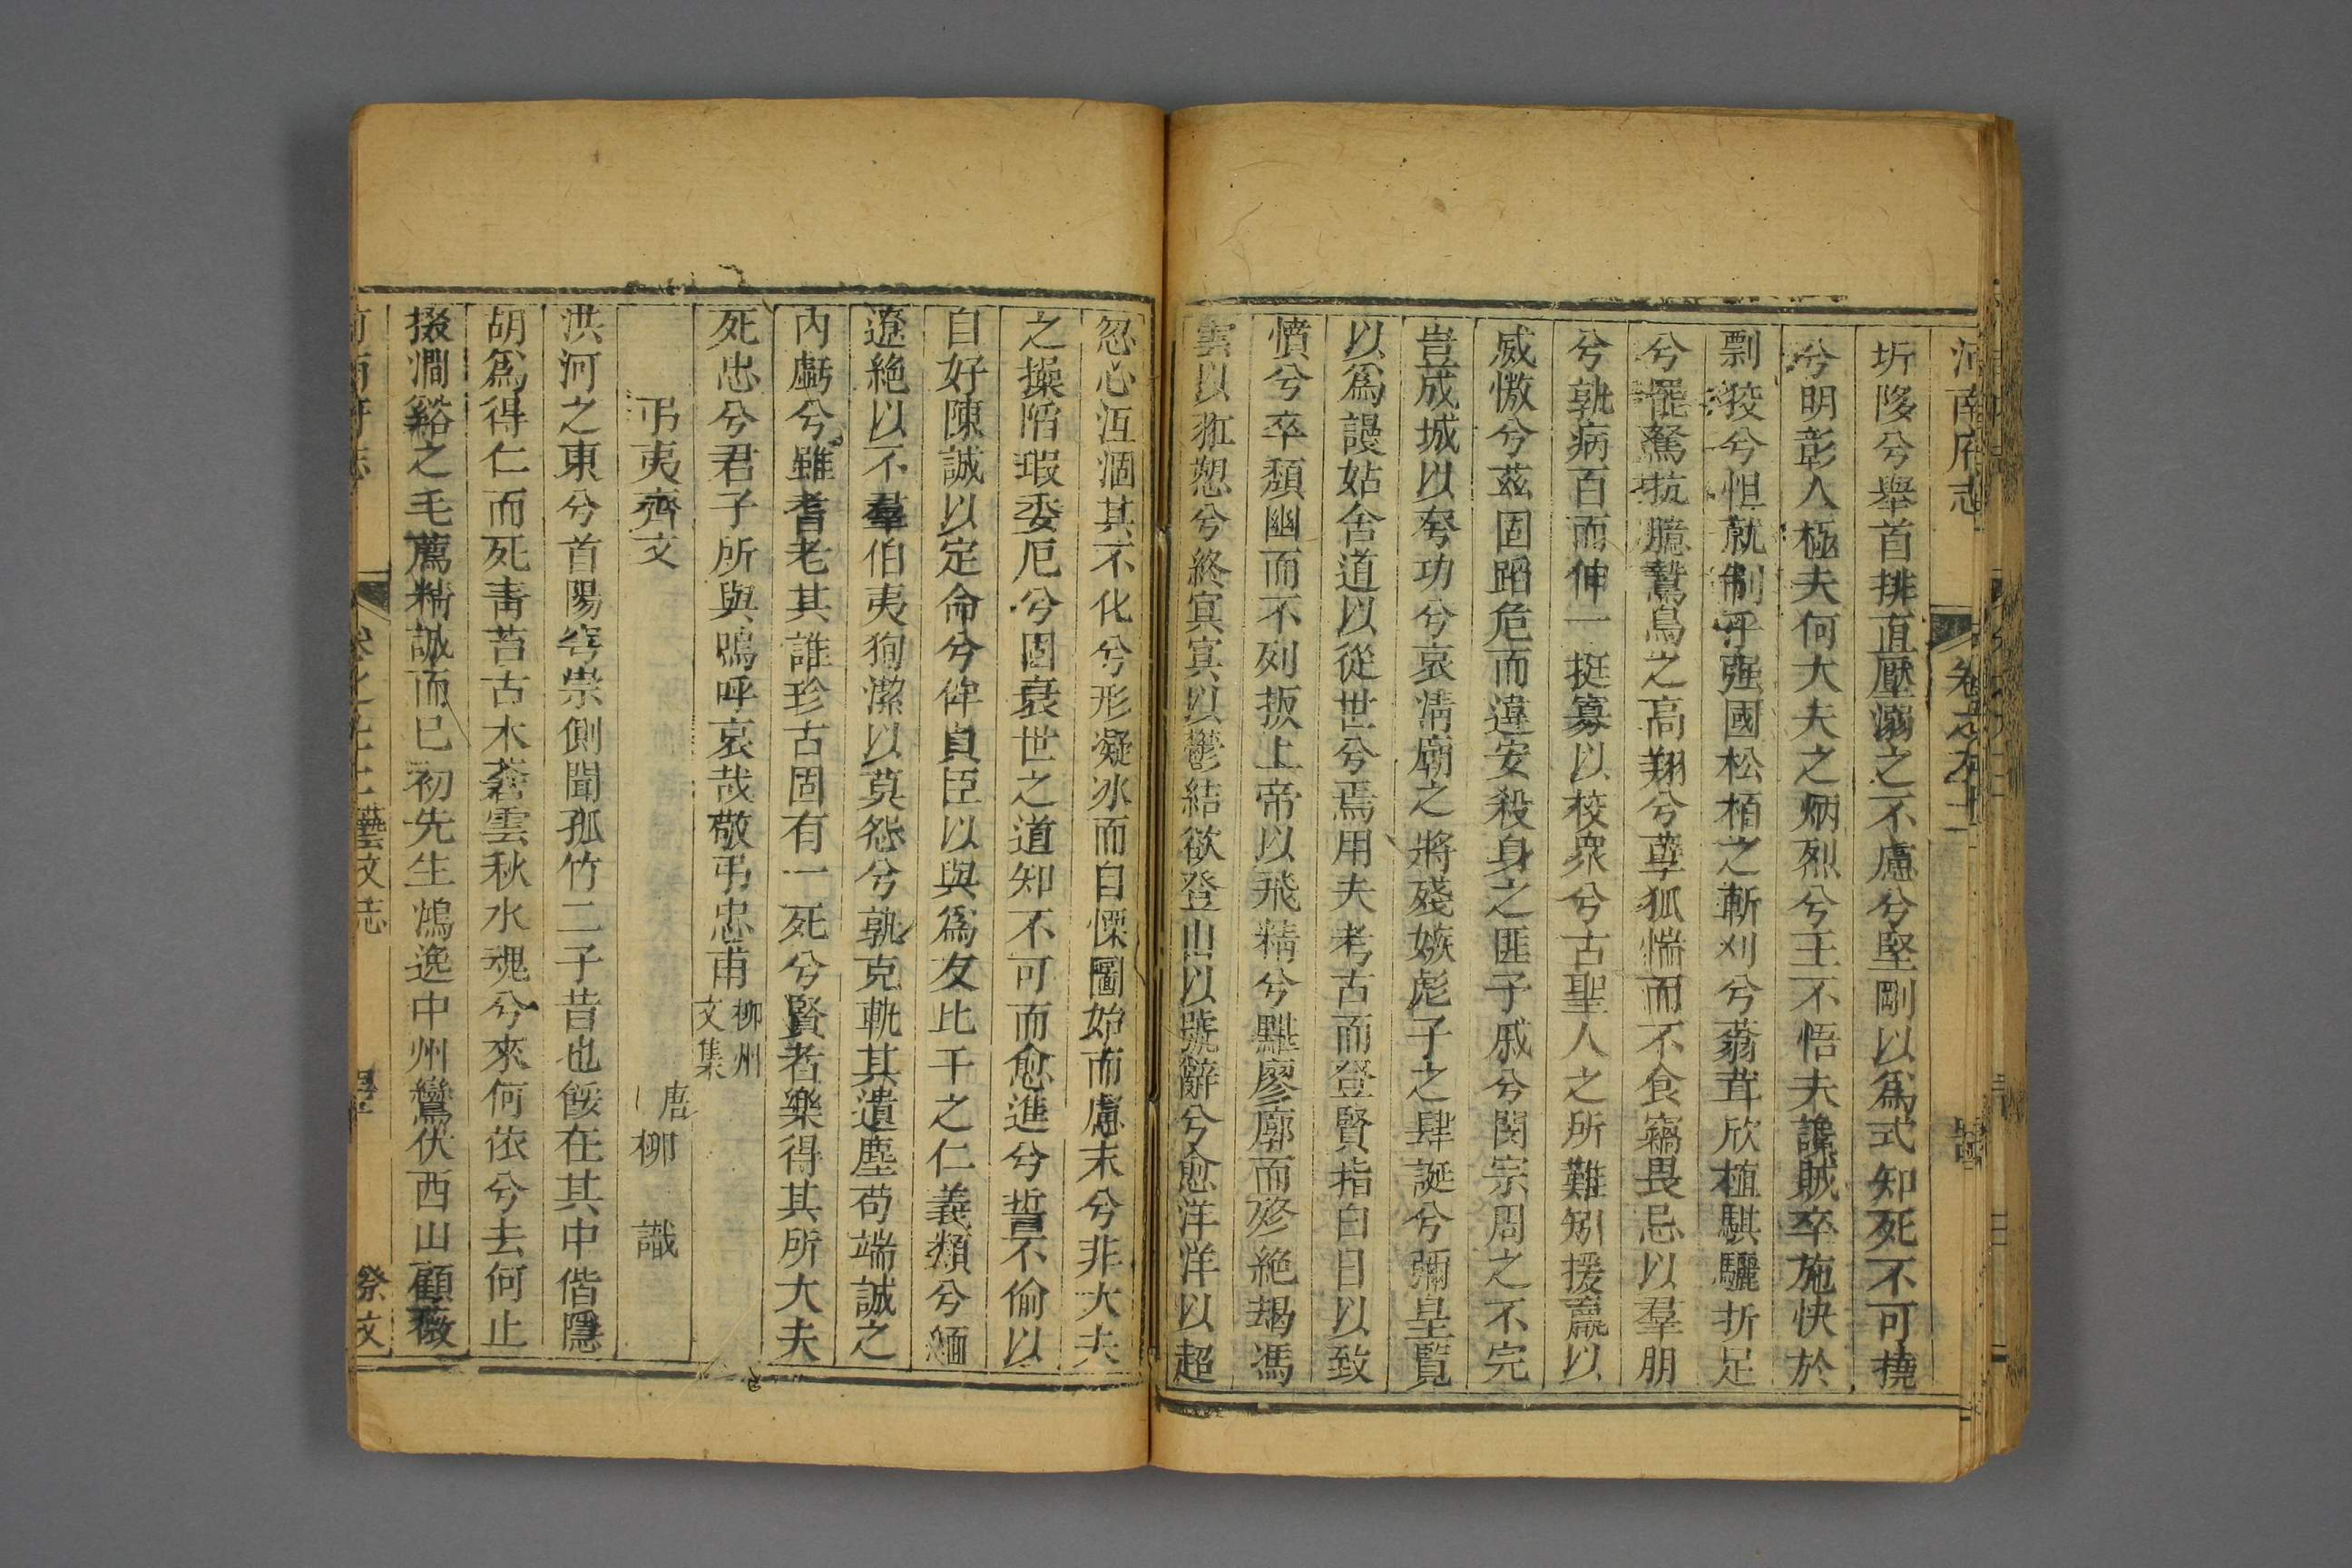 河南府志 卷之九十二
圻陊兮舉首排直壓溺之不慮兮堅剛以爲式知死不可撓
兮明彰人極夫何大夫之炳烈兮王不悟夫讒賊卒施快於
剽狡兮怛就制乎强國松栢之斬刈兮蓊茸欣植騏驪折足
兮罷駑抗臆鷙鳥之高翔兮孽狐惴而不食竊畏忌以羣朋
兮孰病百而伸一挺寡以校衆兮古聖人之所難矧援羸以
威慠兮茲固蹈危而違安殺身之匪予戚兮閔宗周之不完
豈成城以夸功兮哀清廟之將殘嫉彪子之肆誕兮彌皇覽
以爲謾姑舍道以從世兮焉用夫考古而登賢指白日以致
憤兮卒頽幽而不列扳上帝以飛精兮黮廖廓而殄絶朅馮
雲以羾愬兮終冥冥以鬱結欲登山以號辭兮愈洋洋以超
忽心沍涸其不化兮形凝冰而自慄圖始而慮末兮非大夫
之操陷瑕委厄兮固衰世之道知不可而愈進兮誓不偷以
自好陳誠以定命兮侔貞臣以與爲友比干之仁義類兮緬
遼絶以不羣伯夷狥潔以莫怨兮孰克軌其遺塵苟端誠之
內虧兮雖耆老其誰珍古固有一死兮賢者樂得其所大夫
死忠兮君子所與嗚呼哀哉敬弔忠甫 柳州文集
弔夷齊文 唐 柳 識
洪河之東兮首陽穹崇側聞孤竹二子昔也餒在其中偕隱
胡爲得仁而死靑苔古木蒼雲秋水魂兮來何依兮去何止
掇澗谿之毛薦精誠而已初先生鴻逸中州鸞伏西山顧薇
河南府志 藝文志 祭文